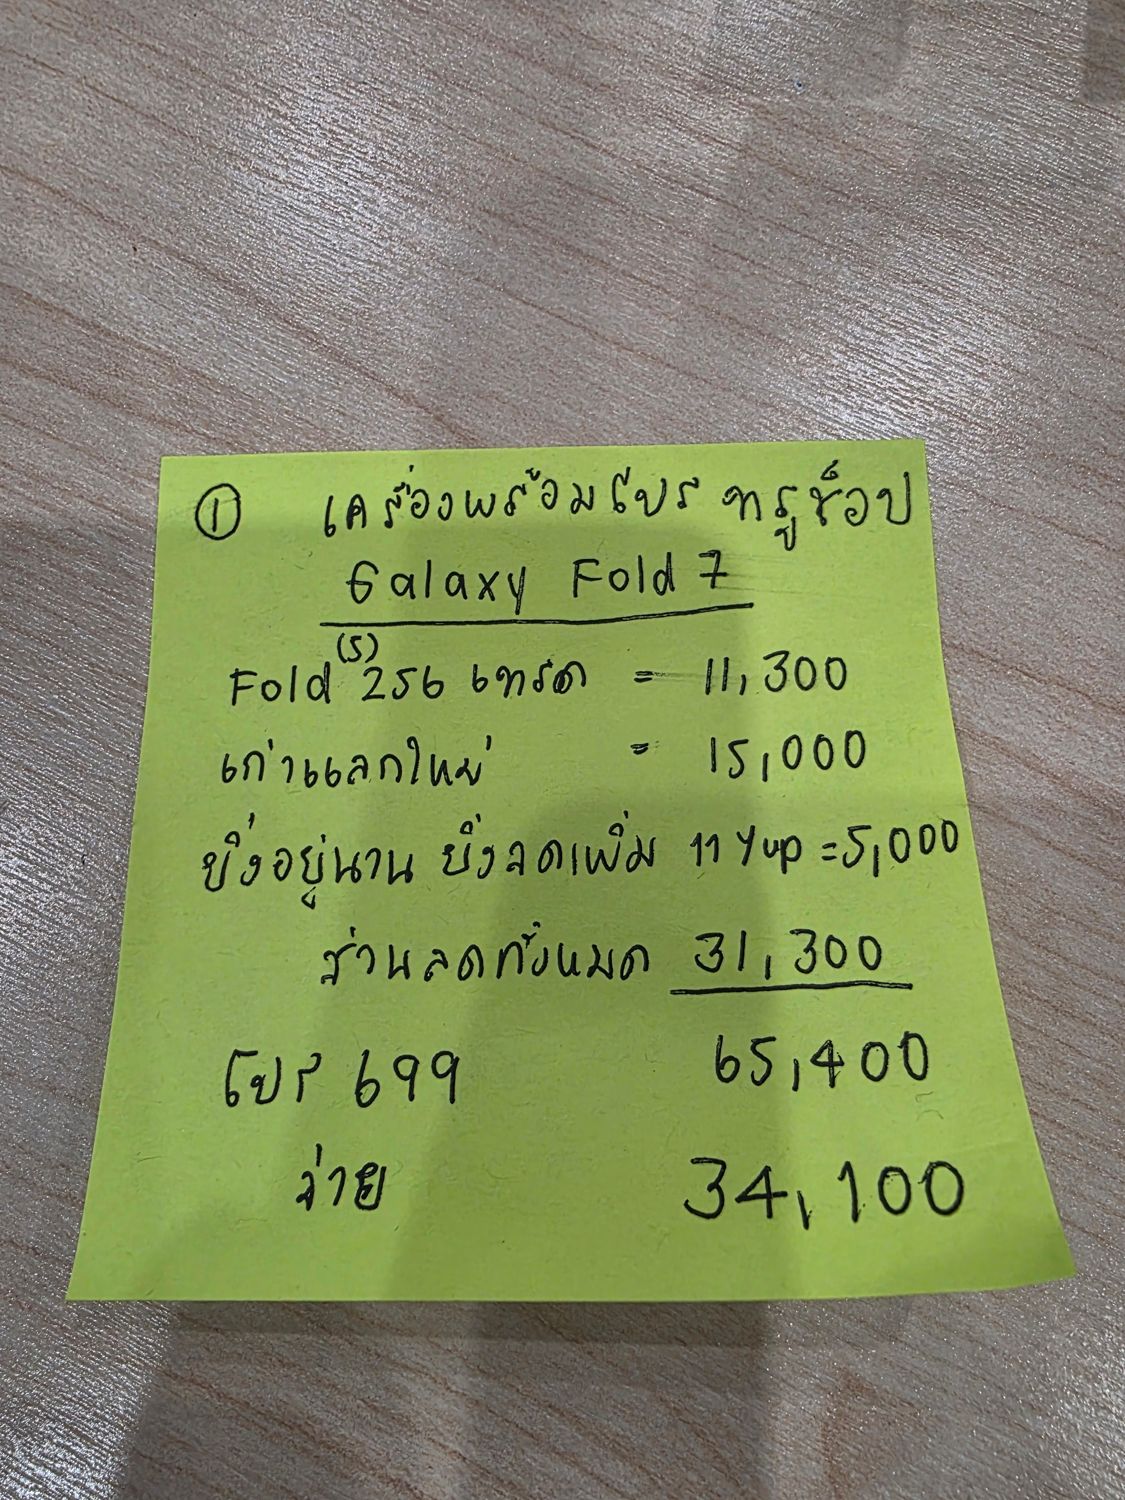 ① เครื่องพร้อมโปร ทรูช็อป
Galaxy Fold 7
Fold (5) 256 เทรด = 11,300
เก่าแลกใหม่ = 15,000
ยิ่งอยู่นาน ยิ่งลดเพิ่ม 11 Yup = 5,000
ส่วนลดทั้งหมด 31,300
โปร 699 65,400
จ่าย 34,100